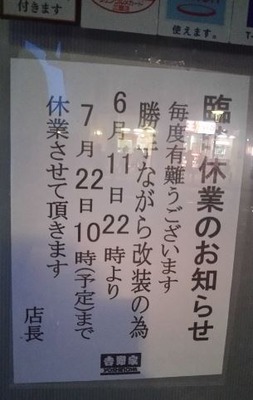 付きます
使えます。
臨時休業のお知らせ
毎度有難うございます
勝手ながら改装の為
6月11日22時より
7月22日10時(予定)まで
休業させて頂きます
店長
吉野家
YOSHINOYA